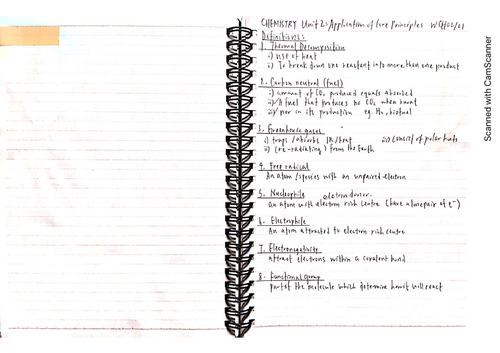 CHEMISTRY Unit 2: Application of Core Principles WCH02/01
Definitions:
1. Thermal Decomposition
i) use of heat
ii) To break down one reactant into more than one product
2. Carbon neutral (fuel)
i) amount of CO₂ produced equals absorbed
ii) / A fuel that produces no CO₂ when burnt
iii) / nor in its production eg. H₂, biofuel
3. Greenhouse gases
i) traps / absorbs IR/heat iii) consist of polar bonds
ii) (re-radiating) from the Earth
4. Free radical
An atom/species with an unpaired electron
5. Nucleophile electron donor.
an atom with electron rich centre (have a lone pair of e⁻)
6. Electrophile
An atom attracted to electron rich centre
7. Electronegativity
attract electrons within a covalent bond
8. Functional group
part of the molecule which determine how it will react
Scanned with CamScanner